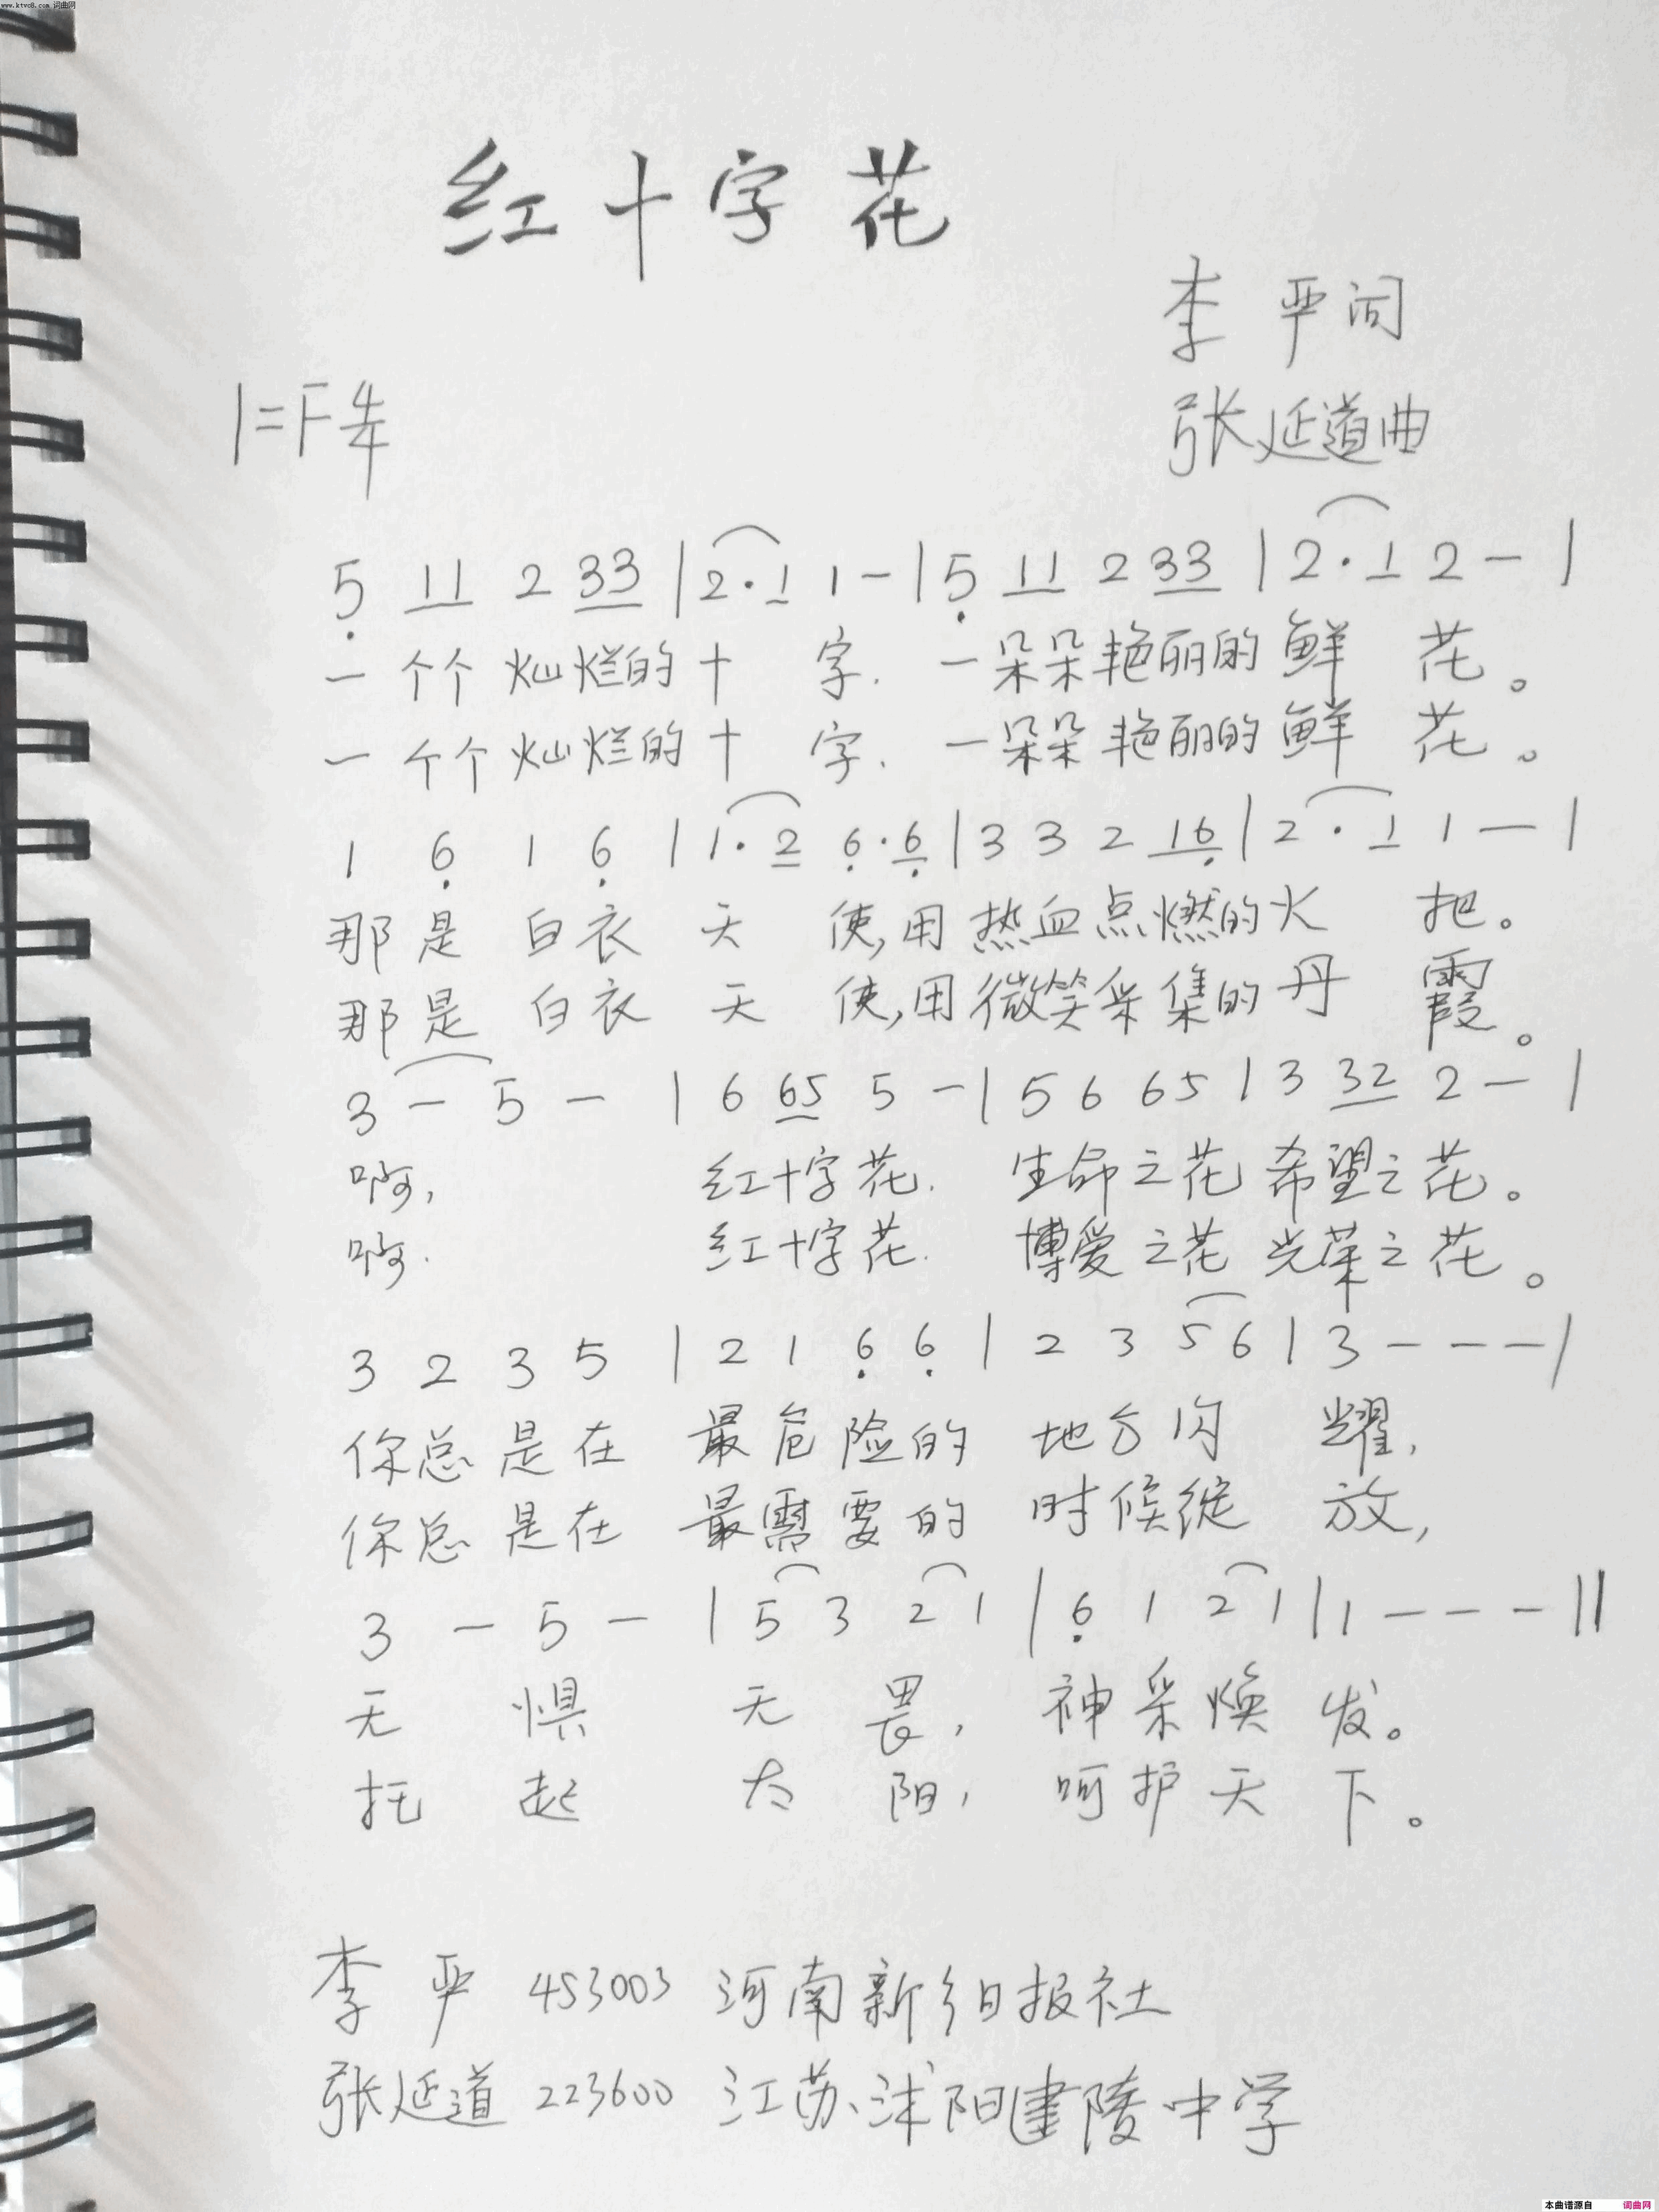 www.ktvc8.com 词曲网
红十字花
李 严词
1=F 4/4
张延道曲
5 11 2 33 | 2·1 1 — | 5 11 2 33 | 2·1 2 — |
一个个灿烂的十字. 一朵朵艳丽的鲜花。
一个个灿烂的十字. 一朵朵艳丽的鲜花。
1 6 1 6 | 1·2 6·6 | 3 3 2 16 | 2·1 1 — |
那是白衣天使,用热血点燃的火把。
那是白衣天使,用微笑采集的丹霞。
3 — 5 — | 6 65 5 — | 5 6 65 | 3 32 2 — |
啊, 红十字花. 生命之花 希望之花。
啊. 红十字花. 博爱之花 光荣之花。
3 2 3 5 | 2 1 6 6 | 2 3 5 6 | 3 — — — |
你总是在 最危险的 地方闪耀,
你总是在 最需要的 时候绽放,
3 — 5 — | 5 3 2 1 | 6 1 2 1 | 1 — — — ||
无惧无畏, 神采焕发。
托起太阳, 呵护天下。
李 严 453003 河南新乡日报社
张延道 223600 江苏沭阳建陵中学
本曲谱源自 词曲网